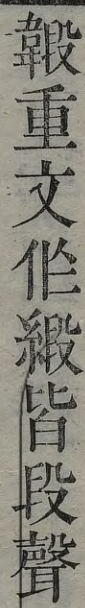 韈重文作緞皆段聲